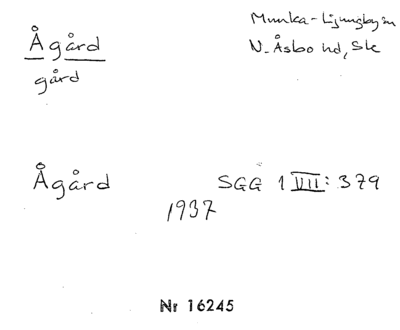 Ågård
Munka-Ljungbyn
N. Åsbo hd, Sk
gård
Ågård
SGG 1 VII: 379
1937
Nr 16245